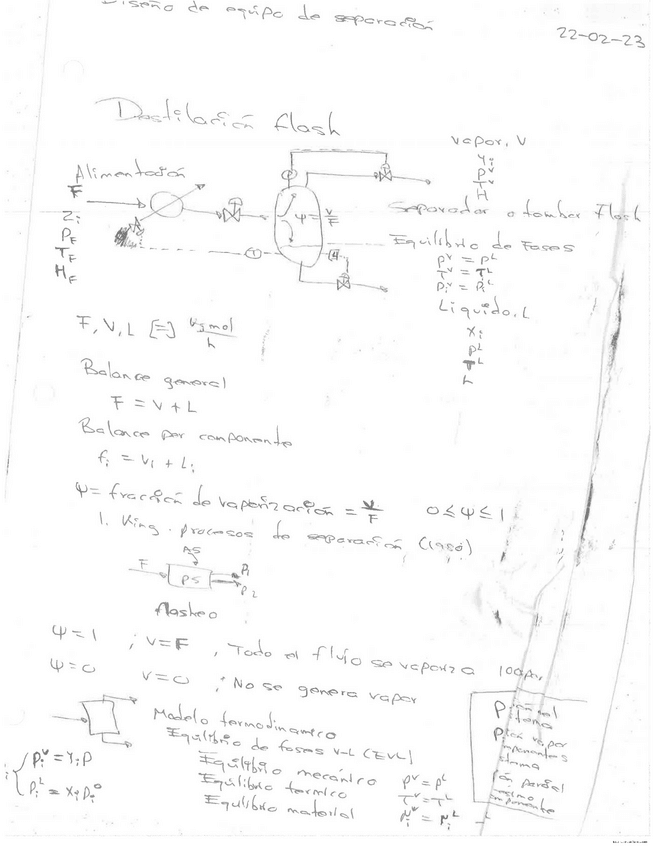 Diseño de equipo de separación
22-02-23
Destilación flash
vapor, V
Yi
Pv
Tv
H
Alimentación
F
Zi
PF
TF
HF
Ψ = V/F
Separador o tambor Flash
Equilibrio de Fases
Pv = PL
Tv = TL
Piv = PiL
Liquido, L
Xi
PL
TL
h
F, V, L [=] kgmol/h
Balance general
F = V + L
Balance por componente
fi = Vi + Li
Ψ = fracción de vaporización = V/F 0 ≤ Ψ ≤ 1
1. King. procesos de separación (1980)
AS
F
PS
P1
P2
flasheo
Ψ = 1 ; V = F , Todo el fluio se vaporiza
Ψ = 0 V = 0 ; No se genera vapor
Modelo termodinamico
Equilibrio de fases V-L (EVL)
Equilibrio mecánico Pv = PL
Equilibrio termico Tv = TL
Equilibrio material
Piv = Yi P
PiL = Xi Pi°
vapor